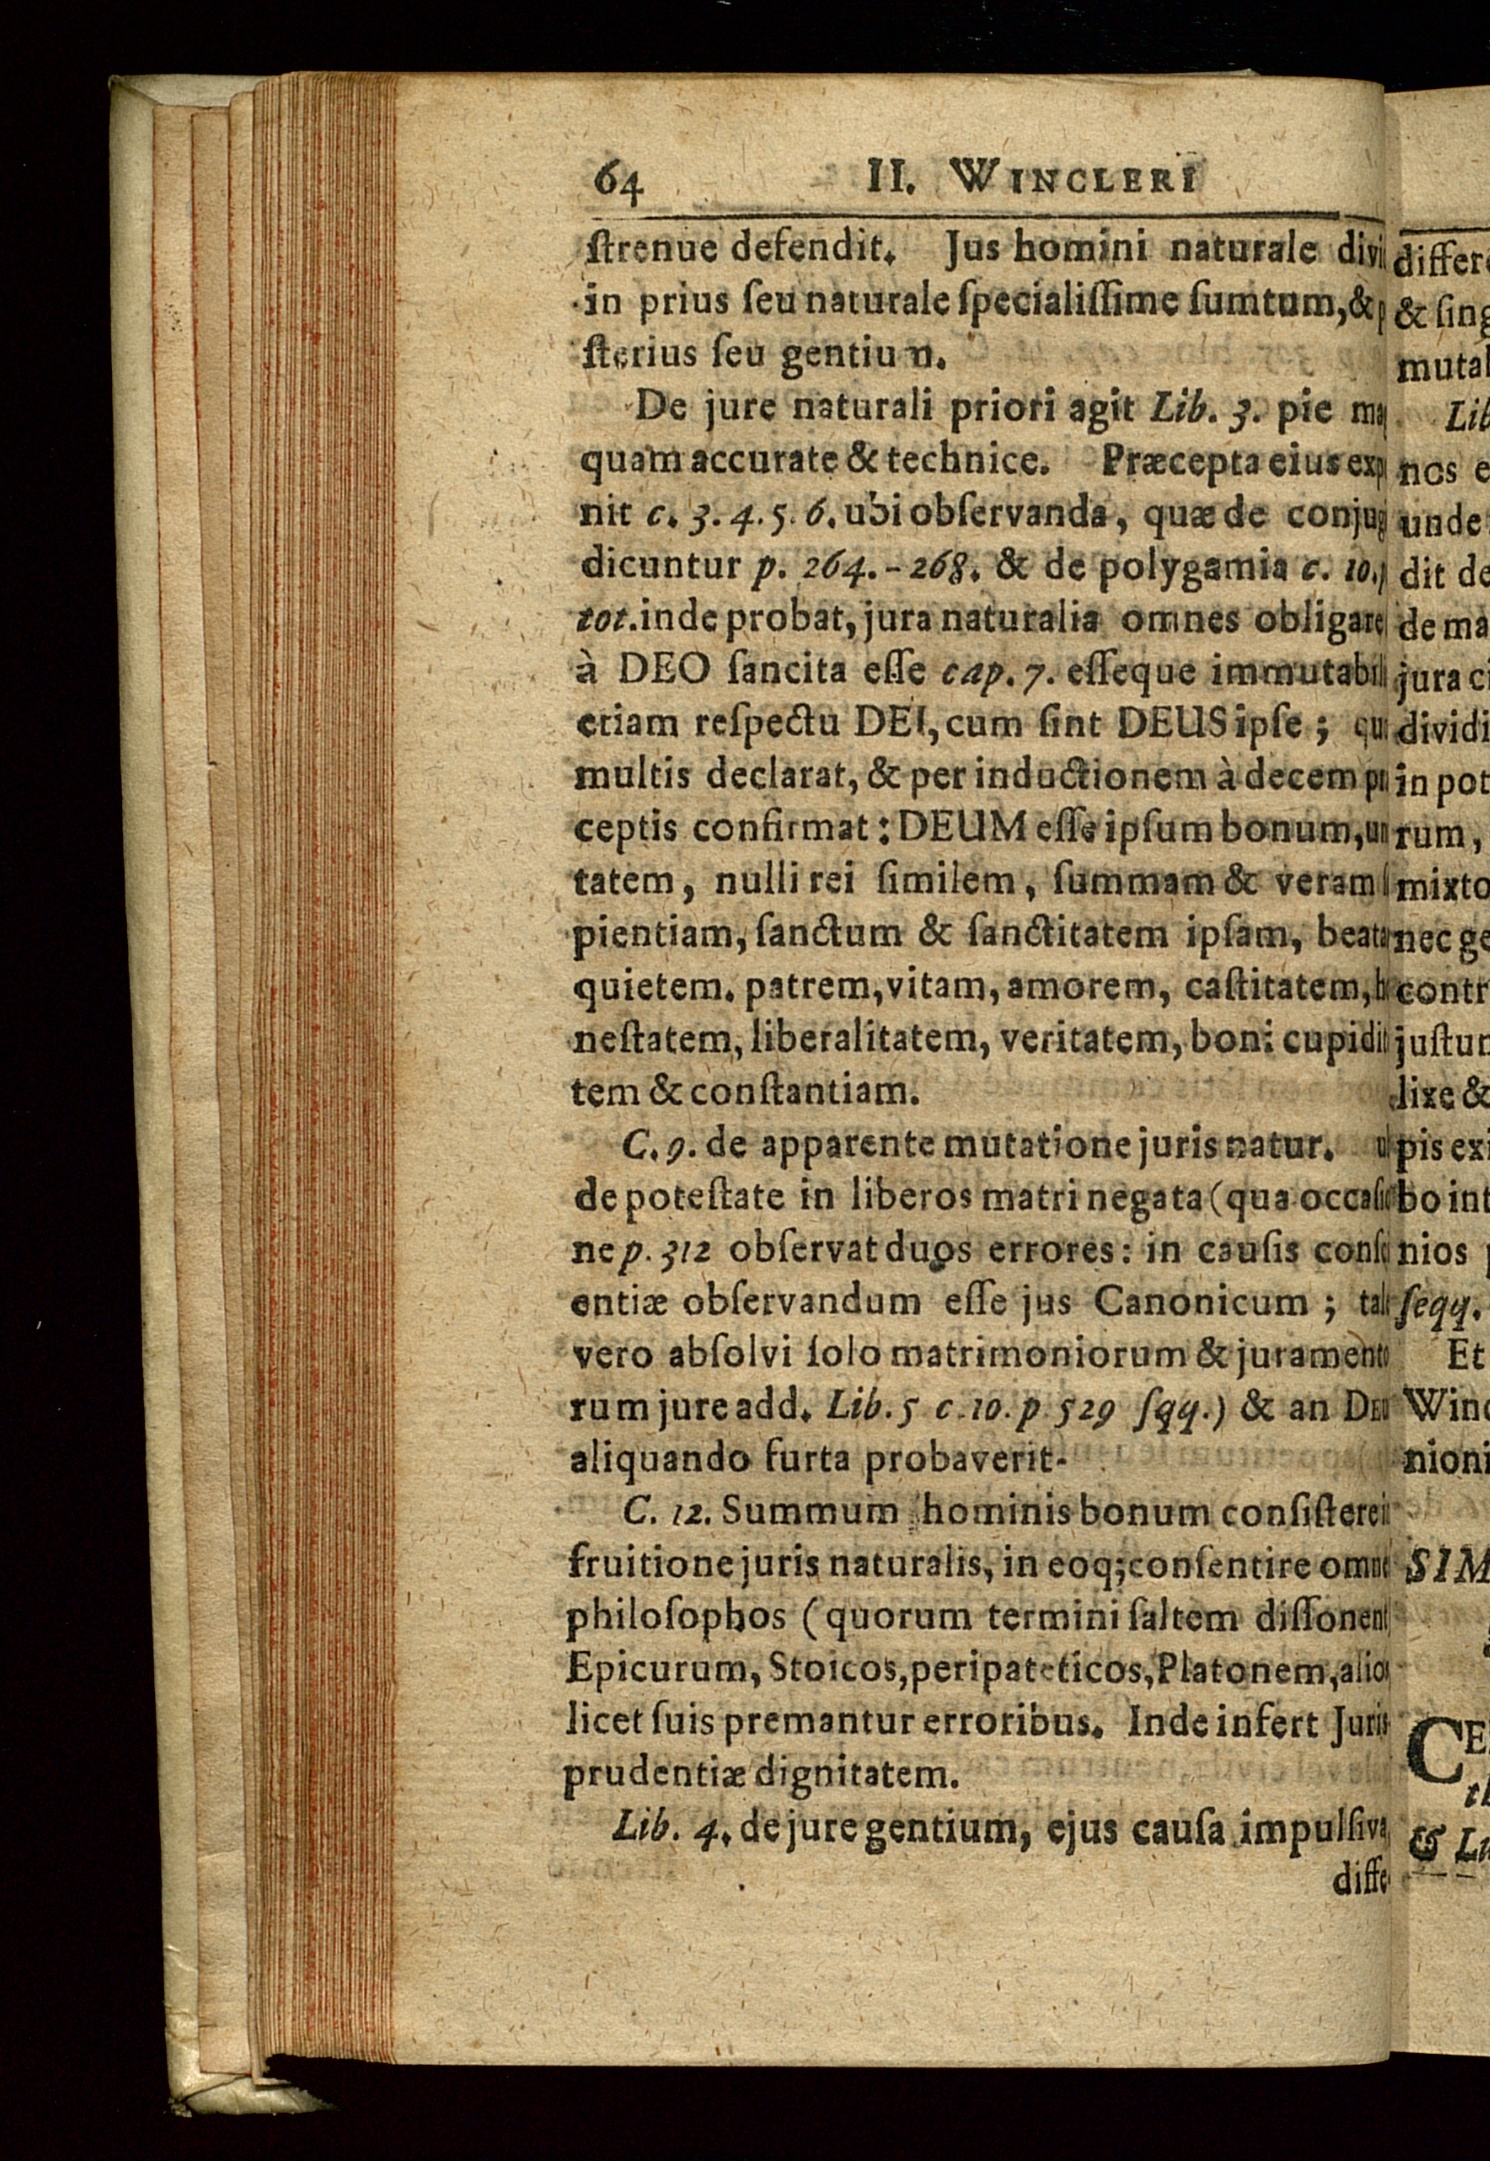 64 II. WINCLERI
ſtrenue defendit. Jus homini naturale divi
in prius ſeu naturale ſpecialiſſime ſumtum, & p
ſterius ſeu gentium.
De jure naturali priori agit Lib. 3. pie ma
quam accurate & technice. Præcepta eius exp
nit c. 3. 4. 5. 6. ubi obſervanda, quæ de conjug
dicuntur p. 264.-268. & de polygamia c. 10.
tot. inde probat, jura naturalia omnes obligare
à DEO ſancita eſſe cap. 7. eſſeque immutabili
etiam reſpectu DEI, cum ſint DEUS ipſe; qu
multis declarat, & per inductionem à decem pr
ceptis confirmat: DEUM eſſe ipſum bonum, un
tatem, nulli rei ſimilem, ſummam & veram ſ
pientiam, ſanctum & ſanctitatem ipſam, beata
quietem. patrem, vitam, amorem, caſtitatem, h
neſtatem, liberalitatem, veritatem, boni cupidit
tem & conſtantiam.
C. 9. de apparente mutatione juris natur. u
de poteſtate in liberos matri negata (qua occaſio
ne p. 312 obſervat duos errores: in cauſis conſci
entiæ obſervandum eſſe jus Canonicum; tali
vero abſolvi ſolo matrimoniorum & juramento
rum jure add. Lib. 5 c. 10. p 529 ſqq.) & an DEU
aliquando furta probaverit-
C. 12. Summum hominis bonum conſiſtere i
fruitione juris naturalis, in eoq; conſentire omne
philoſophos (quorum termini ſaltem diſſonent
Epicurum, Stoicos, peripateticos, Platonem, alio
licet ſuis premantur erroribus. Inde infert Juris
prudentiæ dignitatem.
Lib. 4. de jure gentium, ejus cauſa impulſiva
diffe-
differ
& ſing
mutal
Lib
nos e
unde
dit de
de ma
jura ci
dividi
in pot
rum,
mixto
nec ge
contr
juſtur
lixe &
pis exi
bo int
nios
ſeqq.
Et
Winc
nioni
SIM
CE
tl
& Lu